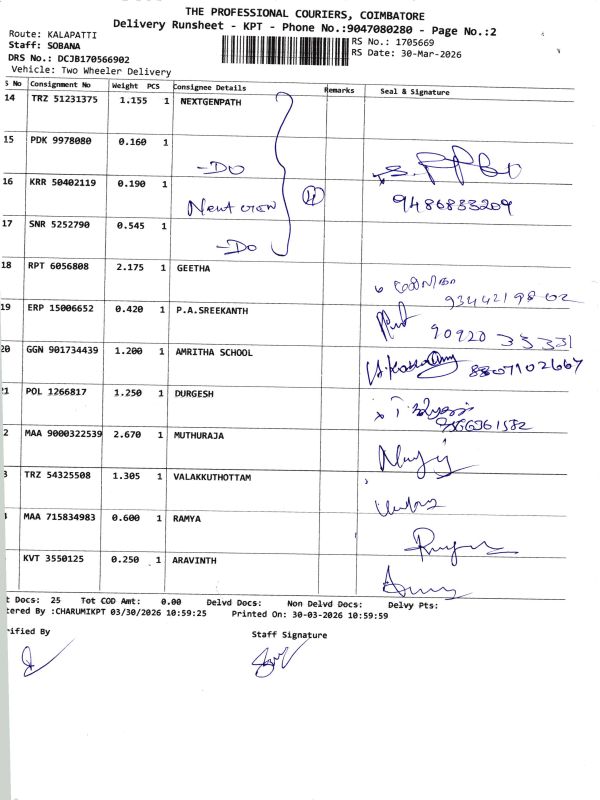 THE PROFESSIONAL COURIERS, COIMBATORE
Delivery Runsheet - KPT - Phone No.:9047080280 - Page No.:2
Route: KALAPATTI
Staff: SOBANA
DRS No.: DCJB170566902
Vehicle: Two Wheeler Delivery
RS No.: 1705669
RS Date: 30-Mar-2026
S No Consignment No Weight PCS Consignee Details Remarks Seal & Signature
14 TRZ 51231375 1.155 1 NEXTGENPATH
15 PDK 9978080 0.160 1
-DO
16 KRR 50402119 0.190 1
9486833209
4
17 SNR 5252790 0.545 1
-DO
18 RPT 6056808 2.175 1 GEETHA
9344219802
19 ERP 15006652 0.420 1 P.A.SREEKANTH
90920 33331
20 GGN 901734439 1.200 1 AMRITHA SCHOOL
21 POL 1266817 1.250 1 DURGESH
2 MAA 9000322539 2.670 1 MUTHURAJA
TRZ 54325508 1.305 1 VALAKKUTHOTTAM
MAA 715834983 0.600 1 RAMYA
KVT 3550125 0.250 1 ARAVINTH
t Docs: 25 Tot COD Amt: 0.00 Delvd Docs: Non Delvd Docs: Delvy Pts:
tered By :CHARUMIKPT 03/30/2026 10:59:25 Printed On: 30-03-2026 10:59:59
rified By Staff Signature